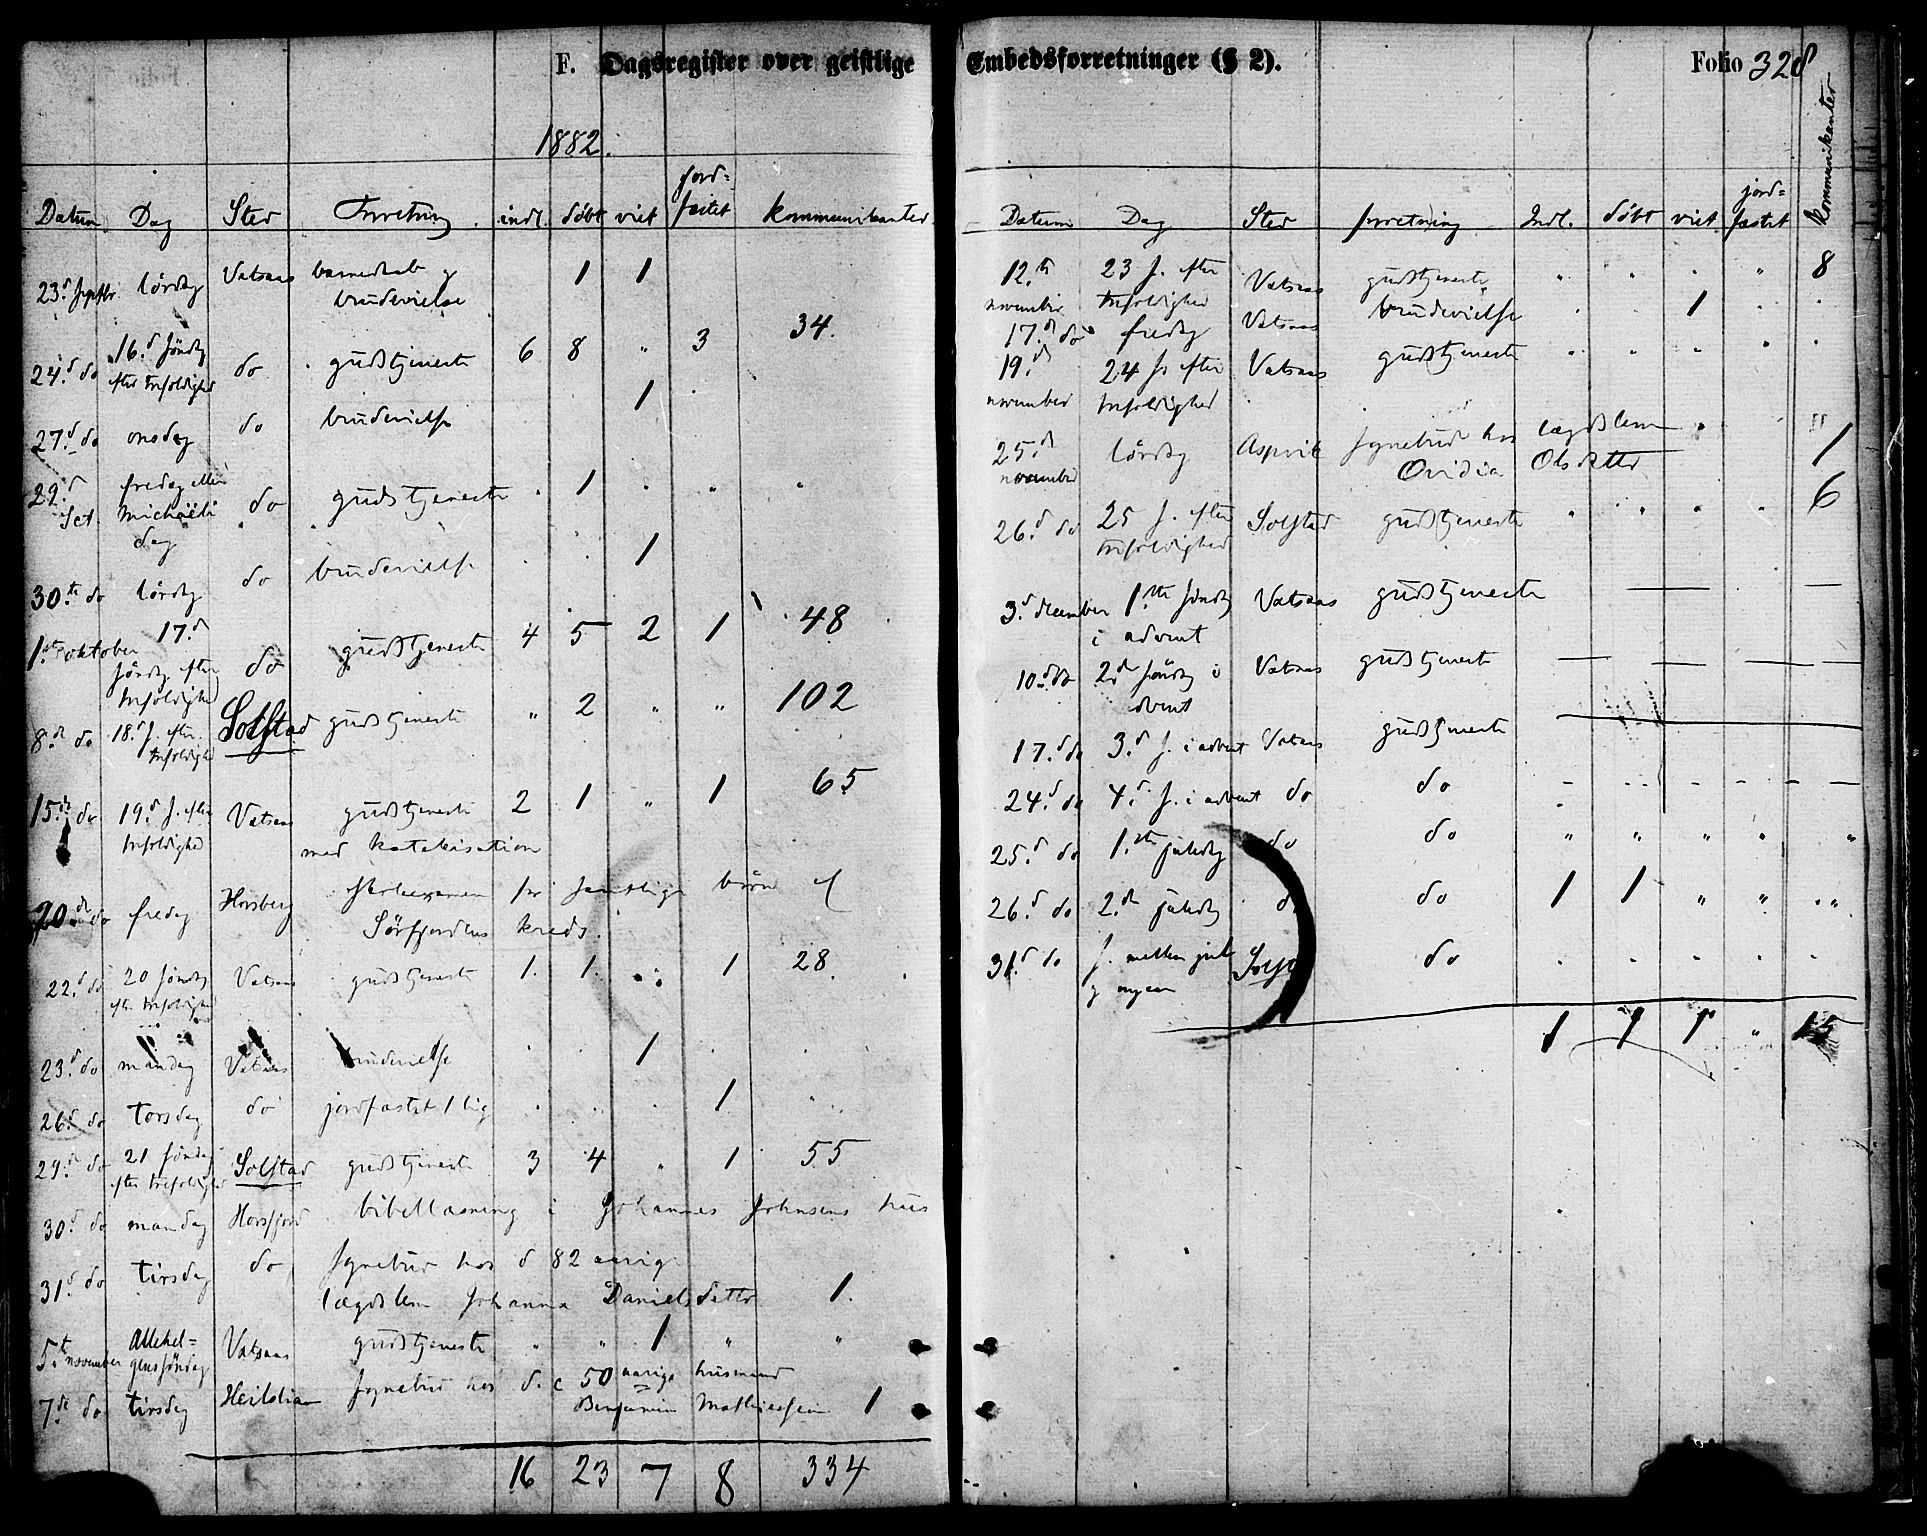 F. Dagsregister over geistlige
1882.
Datum Dag Sted Forretning indl. døbt viet jord=fæstet kommunikanter
23.d septbr lørdag Vatsaas barnedaab og brudevielse 1 1
24.d do 16.d søndag efter trefoldighed do gudstjeneste 6 8 " 3 34.
27.d do onsdag do brudevielse 1
29.d fredag eller Sct. Michaëli dag do gudstjeneste . 1 . " .
30.te do lørdag do brudevielse . . 1
1.ste oktober 17.d søndag efter trefoldighed do gudstjeneste 4 5 2 1 48
8.de do 18.d s. efter trefoldighed Solstad gudstjeneste " 2 " " 102
15.de do 19.d s. efter trefoldighed Vatsaas gudstjeneste 2 1 " 1 65
med katekisation
20.de do fredag Horsberg skoleexamen for samtlige børn af
Sørfjordens kreds.
22.d do 20 søndag eft. trefoldighed Vatsaas gudstjeneste 1. 1. . 1 28
23.d do mandag Vatsaas brudevielse . . 1 .
26.d do torsdag do jordfæstet 1 lig . . . 1
29.de do 21 søndag efter trefoldighed Solstad gudstjeneste 3 4 " 1 55
30.d do mandag Horsfjord bibellæsning i Johannes Johnsens hus
31.d do tirsdag do sognebud hos d 82 aarige
lægdslem Johanna Danielsdatter 1.
5.t november Allehel=gens søndag Vatsaas gudstjeneste " " 1 " "
7.de do tirsdag Heilshaun sognebud hos d. c 50 aarige husmand
Benjamin Mathiessen 1
16 23 7 8 334
Embedsforretninger (§ 2).
Folio 328
Datum Dag Sted forretning Indl. døbt viet jord=fæstet kommunikanter
12.te november 23 s. efter trefoldighed Vatsaas gudstjeneste " . . " 8
17.d do fredag Vatsaas brudevielse . . 1 . .
19.d november 24 s. efter trefoldighed Vatsaas gudstjeneste . " " . .
25.d november lørdag Aspvik sognebud hos lægdslem
Ovidia Olsdatter 1
26.d do 25 s. efter trefoldighed Solstad gudstjeneste . . . . 6
3.d december 1.ste søndag i advent Vatsaas gudstjeneste — —
10.d do 2.d søndag i advent Vatsaas gudstjeneste — — — —
17.d do 3.d s. i advent Vatsaas gudstjeneste
24.d do 4.d s. i advent do do – – – – –
25.d do 1.ste juledag do do " " " " "
26.d do 2.d juledag do do 1 1 " " "
31.d do s. mellem jul og nyaar do . . . . .
1 1 1 " 15